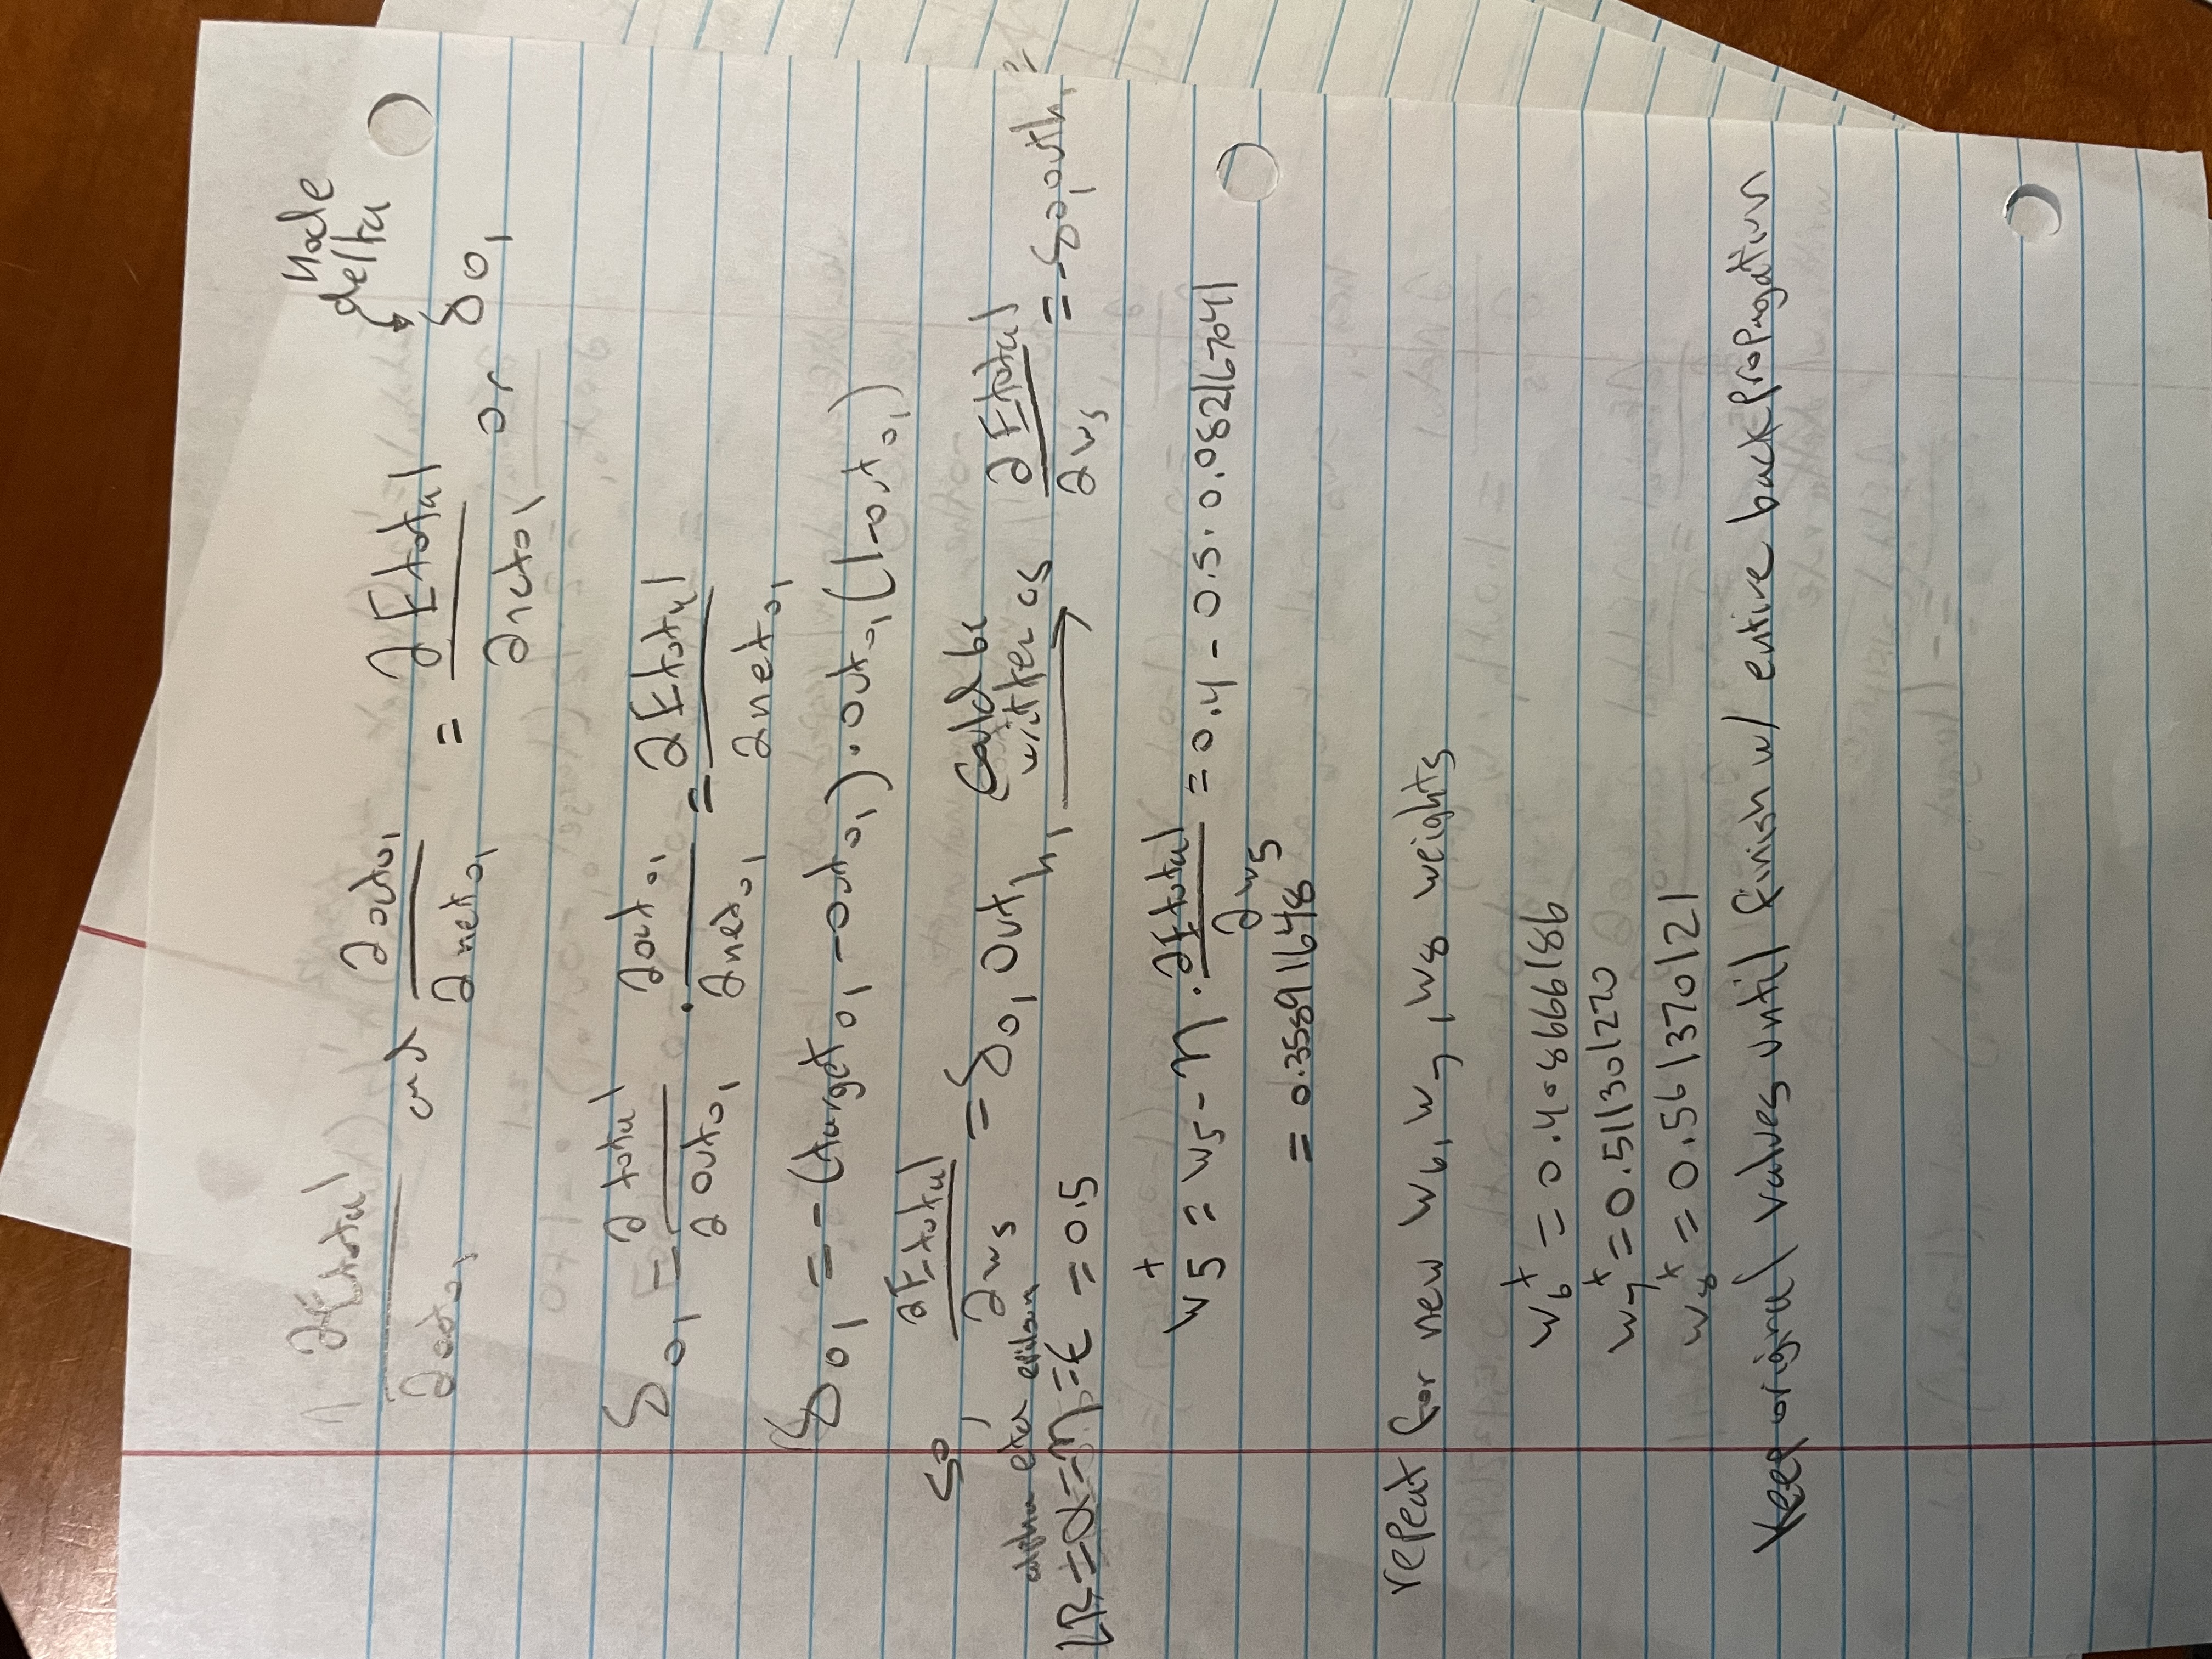 Node
delta
∂Etotal/∂out₀₁ and ∂out₀₁/∂net₀₁ = ∂Etotal/∂net₀₁ or δ₀₁
δ₀₁ = ∂total/∂out₀₁ · ∂out₀₁/∂net₀₁ = ∂Etotal/∂net₀₁
δ₀₁ = -(target₀₁ - out₀₁) · out₀₁(1-out₀₁)
so, ∂Etotal/∂w₅ = δ₀₁ outₕ₁ could be written as → ∂Etotal/∂w₅ = -δ₀₁outₕ₁
alpha eta epsilon
LR = α = η = ϵ = 0.5
w₅⁺ = w₅ - η · ∂Etotal/∂w₅ = 0.4 - 0.5 · 0.082167041
= 0.35891648
repeat for new w₆, w₇, w₈ weights
w₆⁺ = 0.408666186
w₇⁺ = 0.511301270
w₈⁺ = 0.561370121
Keep original values until finish w/ entire backpropagation